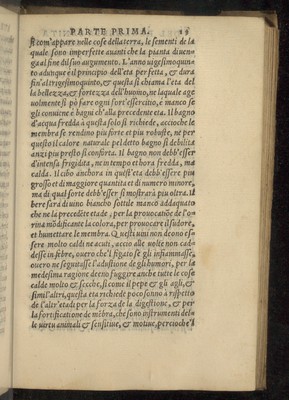 PARTE PRIMA.
si com'appare nelle cose della terra, le sementi de la
quale sono imperfette auanti che la pianta diuen-
ga al fine dil suo augumento. L'anno uigesimoquin
to adunque è il principio dell'eta perfetta, & dura
fin'al trigesimoquinto, & questa si chiama l'eta del
la bellezza, & fortezza dell'huomo, ne laquale age
uolmente si pò fare ogni fort'essercito, è manco se
gli conuiene è bagni ch'alla precedente eta. Il bagno
d'acqua fredda à questa solo si richiede, acciòche le
membra se rendino piu forte et piu robuste, ne per
questo il calore natural pel detto bagno si debilita
anzi piu presto si conforta. Il bagno non debb'esser
d'intensa frigidita, ne in tempo et hora fredda, ma
calda. Il cibo anchora in quest'eta debb'essere piu
grosso et di maggiore quantita et di numero minore,
ma di qual sorte debb'esser si mostrarà piu oltra. Il
bere sarà di uino biancho sottile manco addaquato
che ne la precedēte etade, per la prouocatiōe de l'o-
rina mōdificante la colora, per prouocare il sudore,
et humettare le membra. Questi uini non deono es-
sere molto caldi ne acuti, accio alle uolte non cad-
desse in febre, ouero che'l figato se gli infiammasse,
ouero ne seguitasse l'adustione de gli humori, per la
medesima ragione deeno fuggire anche tutte le cose
calde molto & secche, si come il pepe & gli agli, &
simil'altri, questa eta richiede poco sonno à rispetto
de l'altr'etadi per la forza de la digestione, & per
la fortificatione de mēbra, che sono instrumenti del-
le uirtu animali & sensitiue, & motiue, percioche'l